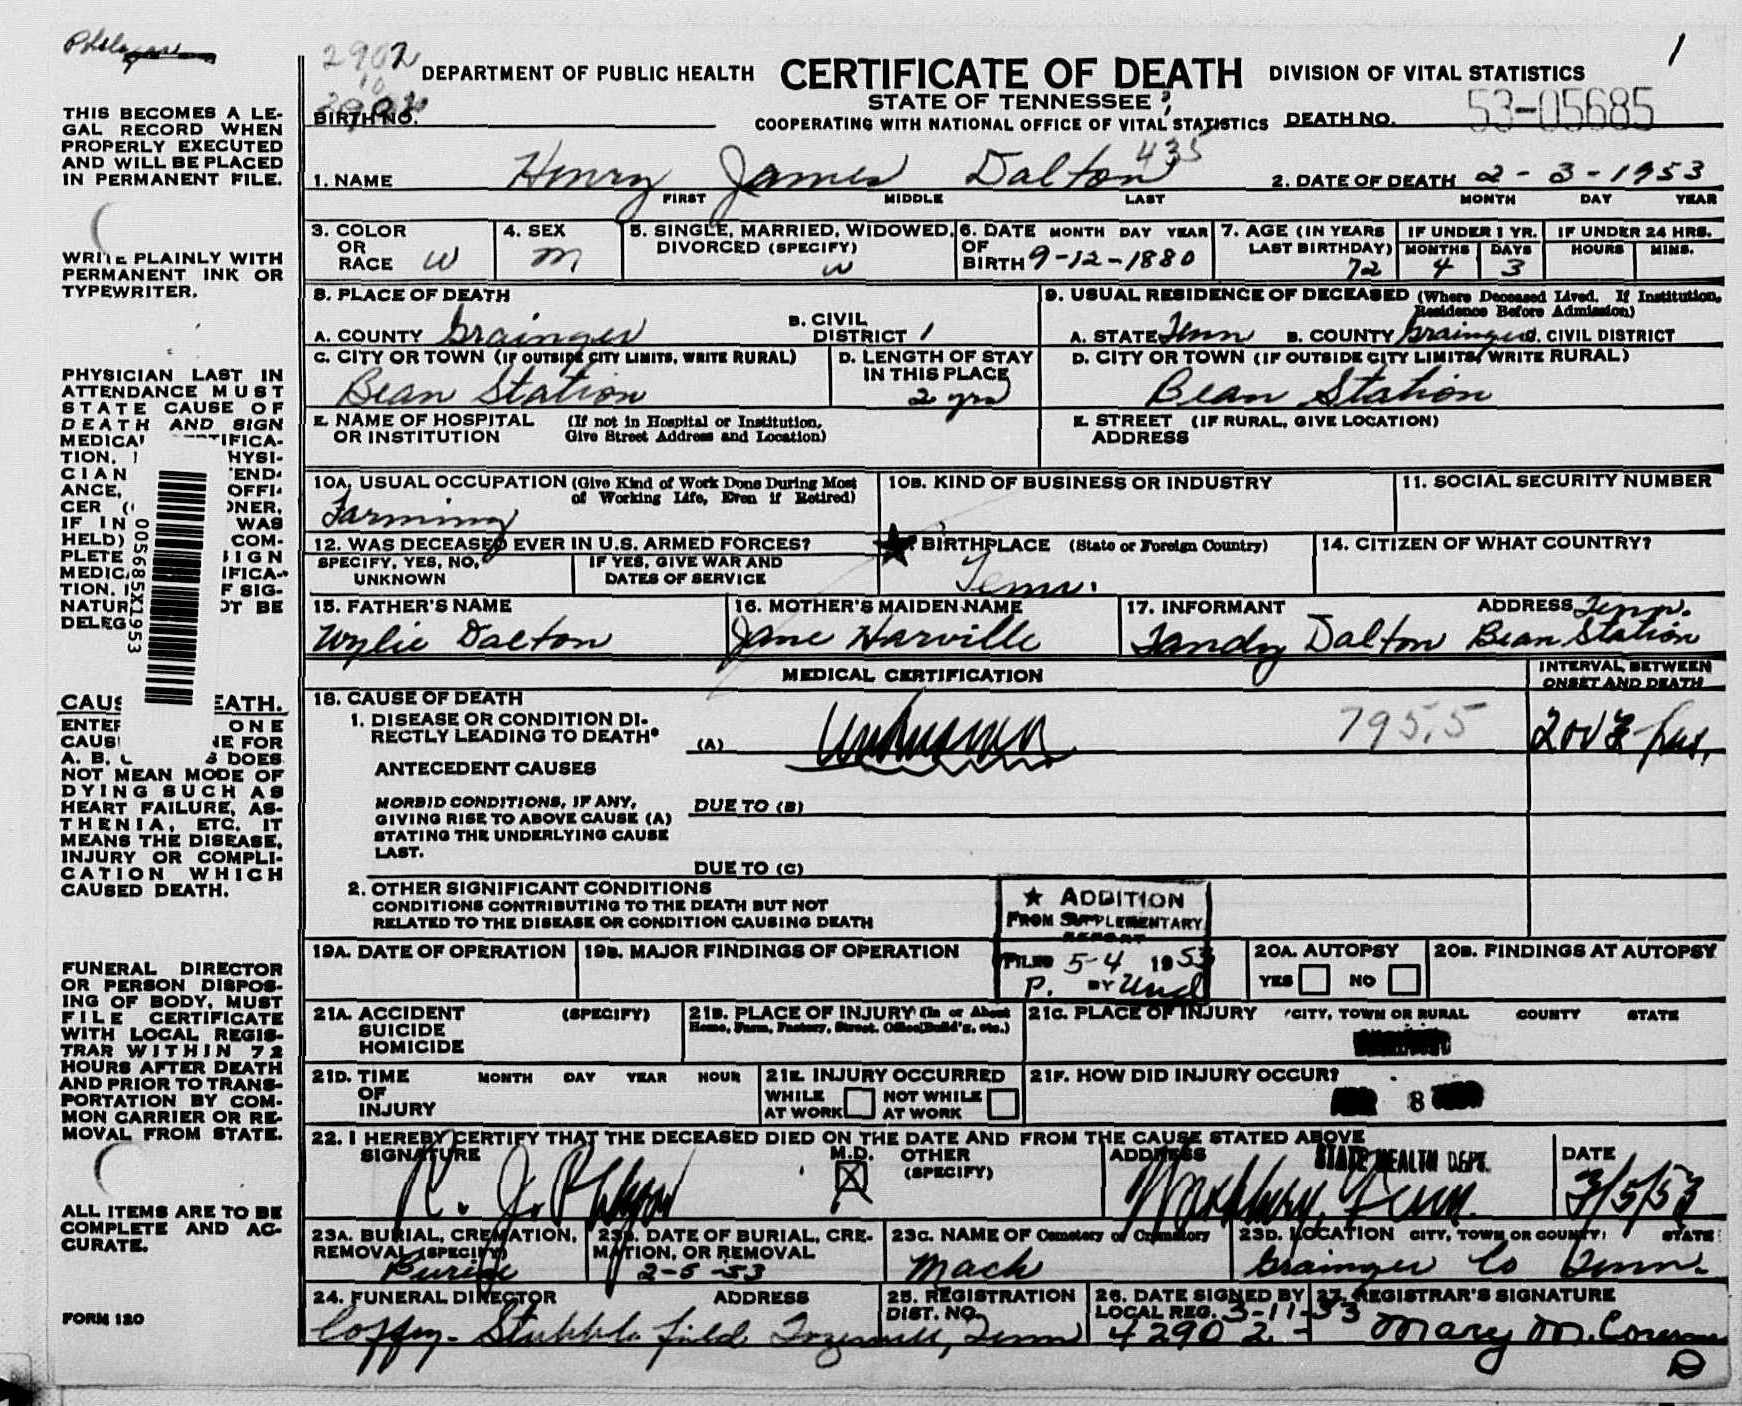 THIS BECOMES A LE-
GAL RECORD WHEN
PROPERLY EXECUTED
AND WILL BE PLACED
IN PERMANENT FILE.
WRITE PLAINLY WITH
PERMANENT INK OR
TYPEWRITER.
PHYSICIAN LAST IN
ATTENDANCE MUST
STATE CAUSE OF
DEATH AND SIGN
MEDICA
TION,
CIAN
ANCE,
IF IN WAS
HELD) COM-
PLETE SIGN
MEDIC
TION. F SIG-
NATUR BE
DELEG
005685X1953
CAUS EATH.
ENTER ONE
CAUS FOR
A. B. DOES
NOT MEAN MODE OF
DYING SUCH AS
HEART FAILURE, AS-
THENIA, ETC. IT
MEANS THE DISEASE,
INJURY OR COMPLI-
CATION WHICH
CAUSED DEATH.
FUNERAL DIRECTOR
OR PERSON DISPOS-
ING OF BODY, MUST
FILE CERTIFICATE
WITH LOCAL REGIS-
TRAR WITHIN 72
HOURS AFTER DEATH
AND PRIOR TO TRANS-
PORTATION BY COM-
MON CARRIER OR RE-
MOVAL FROM STATE.
ALL ITEMS ARE TO BE
COMPLETE AND AC-
CURATE.
FORM 120
2902 1
DEPARTMENT OF PUBLIC HEALTH CERTIFICATE OF DEATH DIVISION OF VITAL STATISTICS
STATE OF TENNESSEE
BIRTH NO. COOPERATING WITH NATIONAL OFFICE OF VITAL STATISTICS DEATH NO. 53-05685
435
1. NAME Henry James Dalton 2. DATE OF DEATH 2-3-1953
FIRST MIDDLE LAST MONTH DAY YEAR
3. COLOR OR RACE W
4. SEX M
5. SINGLE, MARRIED, WIDOWED, DIVORCED (SPECIFY) W
6. DATE OF BIRTH MONTH DAY YEAR 9-12-1880
7. AGE (IN YEARS LAST BIRTHDAY) 72
IF UNDER 1 YR. MONTHS 4 DAYS 3
IF UNDER 24 HRS. HOURS MINS.
8. PLACE OF DEATH
A. COUNTY Grainger B. CIVIL DISTRICT 1
9. USUAL RESIDENCE OF DECEASED (Where Deceased Lived. If Institution, Residence Before Admission)
A. STATE Tenn B. COUNTY Grainger C. CIVIL DISTRICT
C. CITY OR TOWN (IF OUTSIDE CITY LIMITS, WRITE RURAL)
Bean Station
D. LENGTH OF STAY IN THIS PLACE
2 yrs
D. CITY OR TOWN (IF OUTSIDE CITY LIMITS, WRITE RURAL)
Bean Station
E. NAME OF HOSPITAL OR INSTITUTION (If not in Hospital or Institution, Give Street Address and Location)
E. STREET ADDRESS (IF RURAL, GIVE LOCATION)
10A. USUAL OCCUPATION (Give Kind of Work Done During Most of Working Life, Even if Retired)
Farming
10B. KIND OF BUSINESS OR INDUSTRY
11. SOCIAL SECURITY NUMBER
12. WAS DECEASED EVER IN U.S. ARMED FORCES?
SPECIFY, YES, NO, UNKNOWN
IF YES, GIVE WAR AND DATES OF SERVICE
★ BIRTHPLACE (State or Foreign Country)
Tenn.
14. CITIZEN OF WHAT COUNTRY?
15. FATHER'S NAME
Wylie Dalton
16. MOTHER'S MAIDEN NAME
Jane Harville
17. INFORMANT ADDRESS Tenn.
Tandy Dalton Bean Station
MEDICAL CERTIFICATION
INTERVAL BETWEEN ONSET AND DEATH
18. CAUSE OF DEATH
1. DISEASE OR CONDITION DI-
RECTLY LEADING TO DEATH* (A) Unknown 795.5 2 or 3 hrs.
ANTECEDENT CAUSES
MORBID CONDITIONS, IF ANY, DUE TO (B)
GIVING RISE TO ABOVE CAUSE (A)
STATING THE UNDERLYING CAUSE
LAST.
DUE TO (C)
2. OTHER SIGNIFICANT CONDITIONS
CONDITIONS CONTRIBUTING TO THE DEATH BUT NOT
RELATED TO THE DISEASE OR CONDITION CAUSING DEATH
★ ADDITION
FROM SUPPLEMENTARY
REPORT
FILED 5-4 1953
P. BY
19A. DATE OF OPERATION
19B. MAJOR FINDINGS OF OPERATION
20A. AUTOPSY
YES NO
20B. FINDINGS AT AUTOPSY
21A. ACCIDENT SUICIDE HOMICIDE (SPECIFY)
21B. PLACE OF INJURY (In or About Home, Farm, Factory, Street, Office Build'g, etc.)
21C. PLACE OF INJURY (CITY, TOWN OR RURAL COUNTY STATE
21D. TIME OF INJURY MONTH DAY YEAR HOUR
21E. INJURY OCCURRED
WHILE AT WORK NOT WHILE AT WORK
21F. HOW DID INJURY OCCUR?
8
22. I HEREBY CERTIFY THAT THE DECEASED DIED ON THE DATE AND FROM THE CAUSE STATED ABOVE
SIGNATURE M.D. OTHER (SPECIFY) ADDRESS STATE HEALTH DEPT. DATE
R. J. Washburn, Tenn. 3/5/53
23A. BURIAL, CREMATION, REMOVAL (SPECIFY)
Burial
23B. DATE OF BURIAL, CRE-
MATION, OR REMOVAL
2-5-53
23C. NAME OF Cemetery or Crematory
Mack
23D. LOCATION CITY, TOWN OR COUNTY) STATE
Grainger Co Tenn.
24. FUNERAL DIRECTOR ADDRESS
Coffey-Stubblefield Tazewell, Tenn
25. REGISTRATION DIST. NO.
26. DATE SIGNED BY LOCAL REG. 3-11-53
4290 2-
27. REGISTRAR'S SIGNATURE
Mary M.